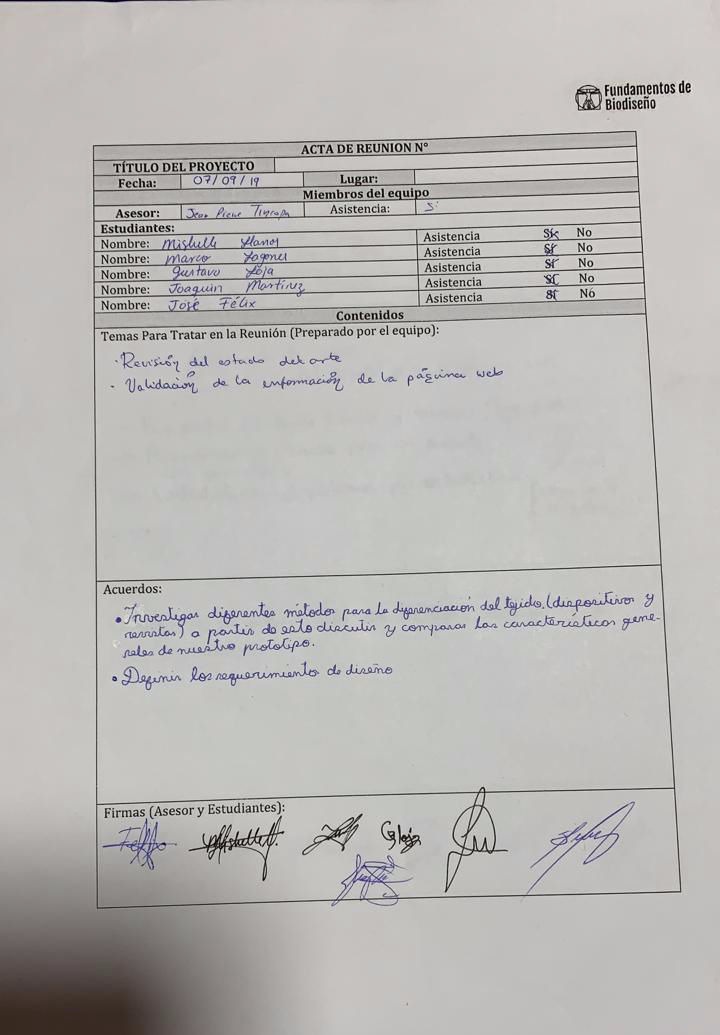 Fundamentos de
Biodiseño
ACTA DE REUNION N°
TÍTULO DEL PROYECTO
Fecha: 07/09/19 Lugar:
Miembros del equipo
Asesor: Jean Pierre Asistencia: Si
Estudiantes:
Nombre: Mishelle Llanos Asistencia SI No
Nombre: Marco Asistencia SI No
Nombre: Gustavo Loja Asistencia SI No
Nombre: Joaquin Martinez Asistencia SI No
Nombre: José Félix Asistencia SI No
Contenidos
Temas Para Tratar en la Reunión (Preparado por el equipo):
· Revisión del estado del arte
· Validación de la información de la página web
Acuerdos:
• Investigar diferentes métodos para la diferenciación del tejido. (dispositivos y
revistas) a partir de esto discutir y comparar las características gene-
rales de nuestro prototipo.
• Definir los requerimiento de diseño
Firmas (Asesor y Estudiantes):